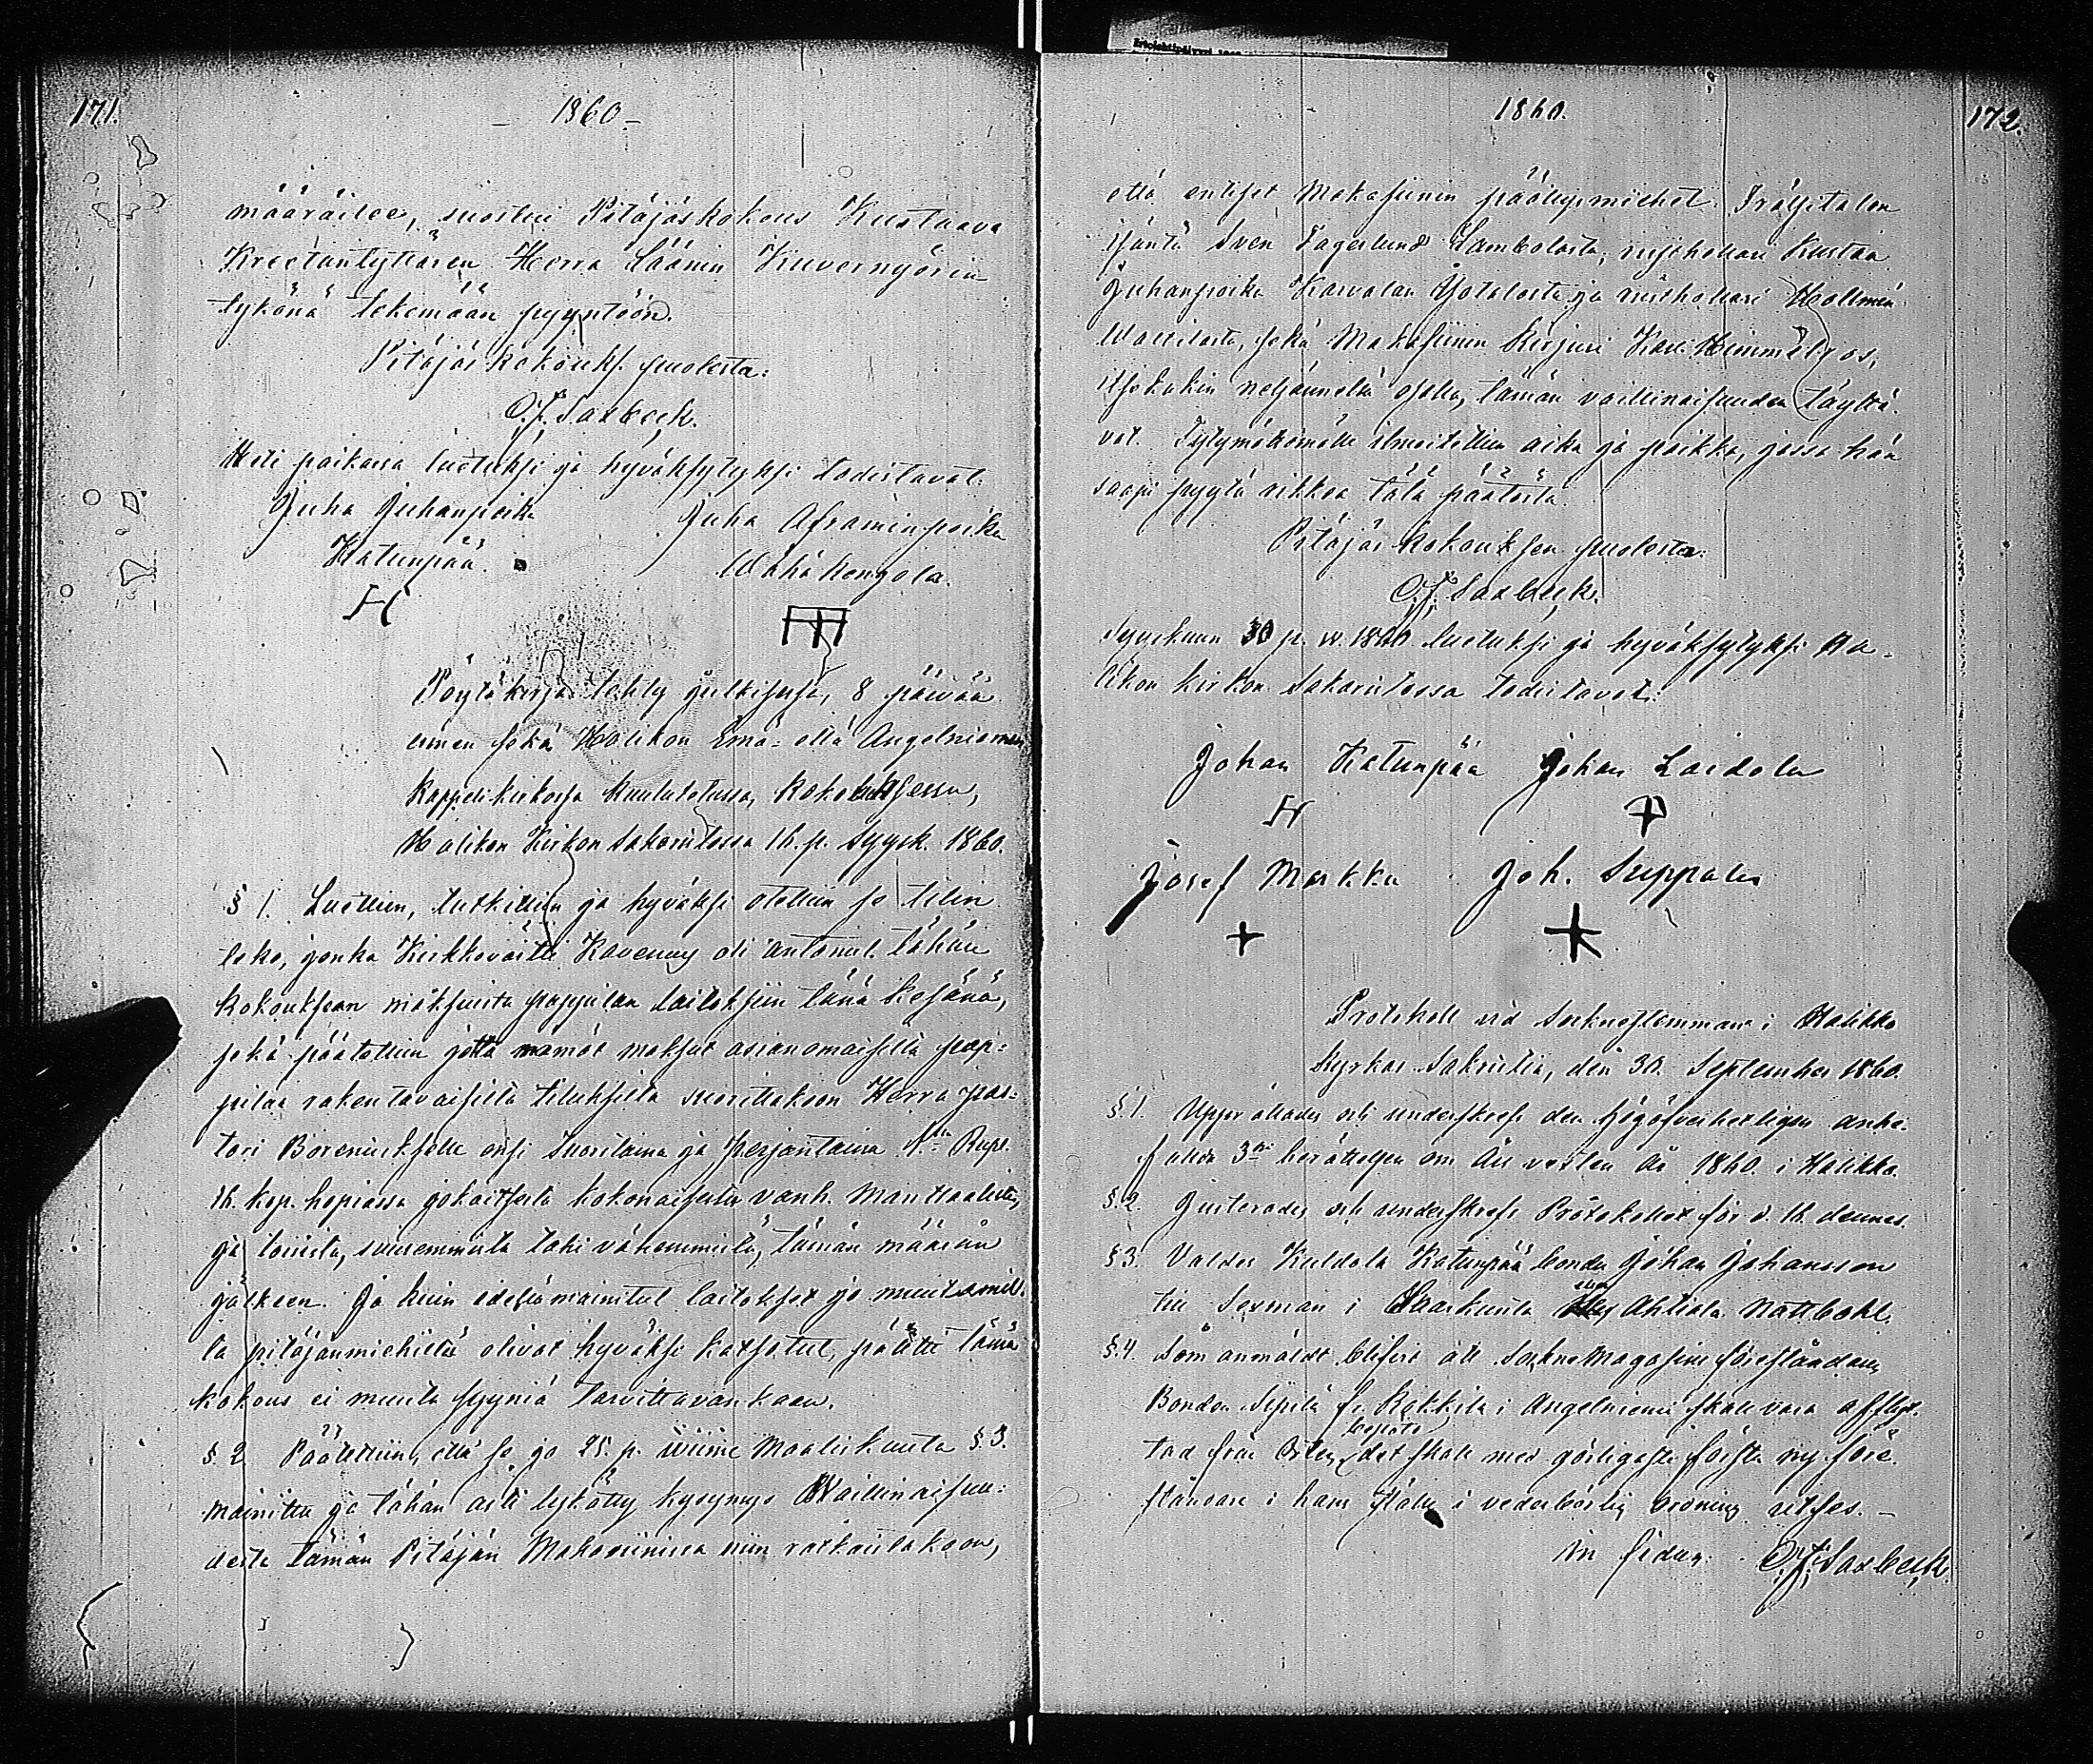 171.
- 1860 -
määräilee, suostui Pitäjäskokous Kustaava
Kreetantyttären Herra Läänin Kuvernyörin
tykönä tekemään pyyntöön.
Pitäjäs kokouks. puolesta:
C. J. Saxbeck.
Heti paikassa luetuksi ja hyväksytyksi todistavat.
Juha Juhanpoika
Juha Abraminpoika
Katunpää.
Wähä Kengola.
Pöytäkirja tehty julkisessa, 8 päivää
ennen sekä Halikon Emä- että Angelniemen
kappelikirkossa kuulutetussa, kokouksessa,
Halikon Kirkon Sakaristossa 16. p. Syysk. 1860.
§ 1. Luettiin, tutkittiin ja hyväksi otettiin se tilin
teko, jonka Kirkkoväärti Kavenius oli antanut tähän
kokouksean maksuista pappilan laitoksiin tänä kesänä,
sekä päätettiin jotta nämät maksut asianomaisilta pap=
pilaa rakentavaisilta tiluksilta suorittakoon Herra pas=
tori Boreniukselle ensi Tuorstaina ja perjantaina 1 Rupl.
16. kop. hopiassa jokaitsesta kokonaisesta vanh. Manttaalista,
ja toisista, suuremmista tahi vähemmistä, tämän määrän
jälkeen. Ja kuin edellämainitut laitokset jo muutamil=
ta pitäjänmiehistä olivat hyväksi katsotut, päätti tämä
kokous ei muuta syyniä tarvittavankaan.
§. 2 Päätettiin, että se jo 25. p. wiime Maaliskuuta §. 3.
mainittu ja tähän asti lykätty kysymys Waillinaisuu=
desta tämän Pitäjän Makasiinissa niin ratkaistakoon,
1860.
172.
että entiset Makasiinin päällysmiehet Träskitalon
isäntä Sven Fagerlund Lambolasta, rusthollari Kustaa
Juhanpoika Karvalan Yötalosta ja rusthollari Hollmén
Wassilasta, sekä Makasiinin Kirjuri Karl Himmelros,
itsekukin neljännellä osalla, tämän vaillinaisuuden täyttä=
vät. Tytymättömälle ilmoitettiin aika ja paikka, jossa hän
saapi pyytä rikkoa tätä päätöstä.
Pitäjäs kokouksen puolesta:
C. J. Saxbeck.
Syyskuun 30 p. w. 1860 luetuksi ja hyväksytyksi Ha=
likon kirkon Sakaristossa todistavat:
Johan Katunpää Johan Laidola
Josef Markku Joh. Seppälä
Protokoll vid Socknestemman i Halikko
Kyrkas Sakristia, den 30. September 1860.
§. 1. Upprättades och underskrefs den högöfverhetligen anbe=
falda 3die berättelsen om Års växten År 1860. i Halikko.
§. 2. Justerades och underskrefs Protokollet för d. 16. dennes.
§ 3. Valdes Kuldola Katunpää bonde Johan Johansson
till Sexman i Maarkunta eller Ahtiala Nattbohl.
§. 4. Som anmäldt blifvit att Sockne Magasins föreståndaren
Bonden Sipilä fr. Kokkila i Angelniemi skall vara afflyt=
tad från Orten, beslöts det skall med görligaste första ny före=
ståndare i hans ställe i vederbörlig ordning utses. -
In fidem: C. J. Saxbeck.